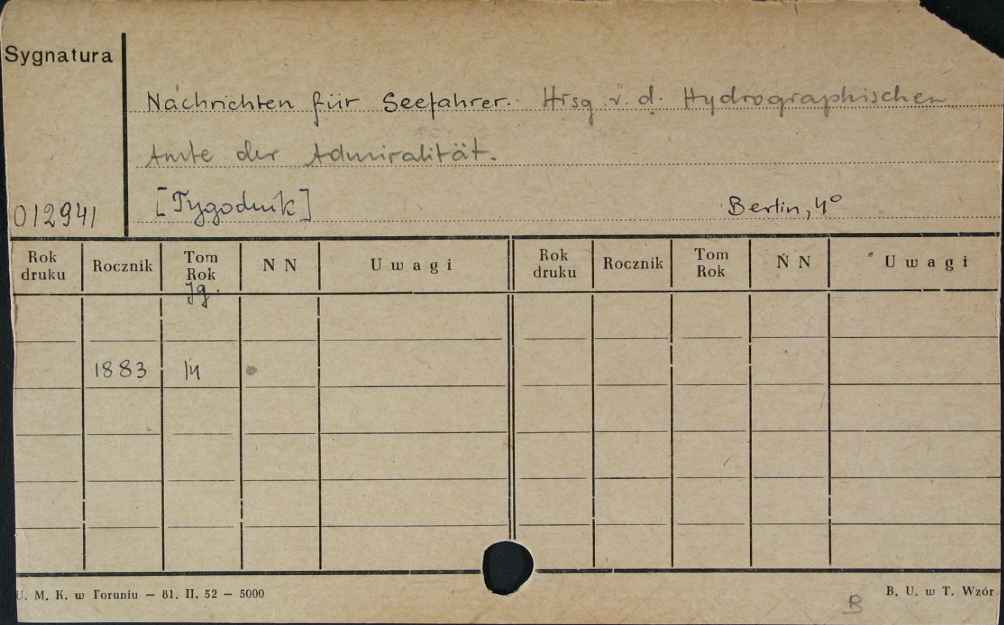 Sygnatura
Nachrichten für Seefahrer. Hrsg v. d. Hydrographischen
Amte der Admiralität.
012941 [Tygodnik] Berlin, 4°
Rok druku Rocznik Tom Rok Jg. N N Uwagi Rok druku Rocznik Tom Rok N N Uwagi
1883 14
U. M. K. w Toruniu — 81. II. 52 — 5000 B. U. w T. Wzór
B